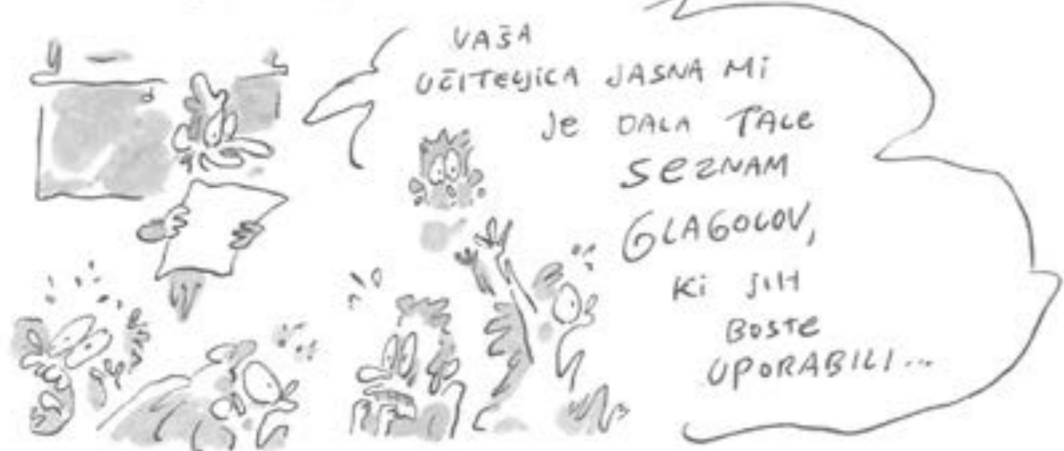 VAŠA
UČITELJICA JASNA Mi
Je DALA TALE
SeZNAM
GLAGOLOV,
Ki JIH
BOSTe
UPORABILI...